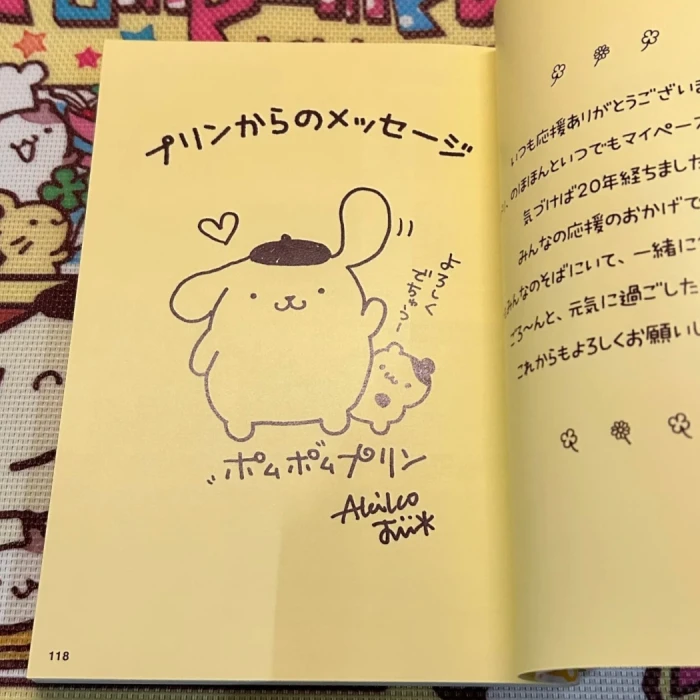 プリンからのメッセージ
よろしく
でちゅう〜
ポムポムプリン
Akiko
118
いつも応援ありがとうござい
のほほんといつでもマイペース
気づけば20年経ちました
みんなの応援のおかげで
みんなのそばにいて、一緒に
ごろ〜んと、元気に過ごした
これからもよろしくお願いし